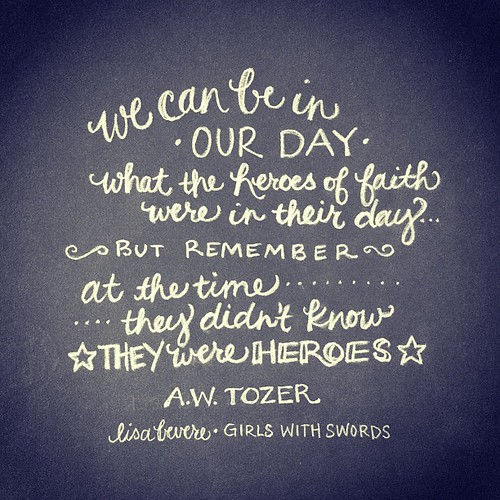 we can be in
• OUR DAY •
what the heroes of faith
were in their day...
BUT REMEMBER
at the time .........
.... they didn't know
THEY were HEROES
A.W. TOZER
lisa bevere • GIRLS WITH SWORDS